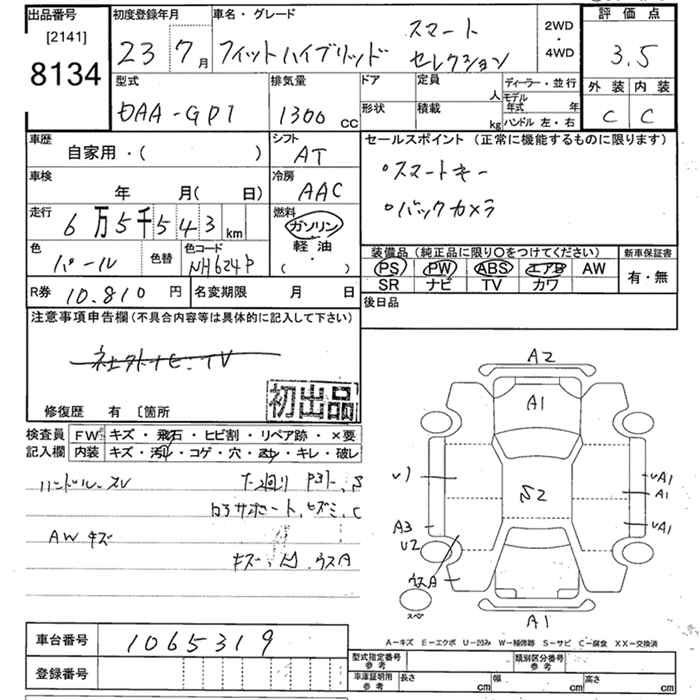 出品番号 初度登録年月 車名・グレード 2WD・4WD 評価点
[2141]
8134
23 7月 フィットハイブリッド スマートセレクション 3.5
型式 排気量 ドア 定員 人 ディーラー・並行 外装 内装
DAA-GP1 1300 cc 形状 積載 kg モデル年式 年 ハンドル 左・右 C C
車歴 シフト セールスポイント (正常に機能するものに限ります)
自家用・( ) AT
車検 冷房 ・スマートキー
年 月( 日) AAC
走行 燃料 ・バックカメラ
6万5千543km ガソリン
軽油
・( )
色 色替 色コード 装備品 (純正品に限り○をつけてください) 新車保証書
パール NH624P PS PW ABS エアB AW 有・無
SR ナビ TV カワ
R券 10,810円 名変期限 月 日 後日品
注意事項申告欄 (不具合内容等は具体的に記入して下さい)
初出品
修復歴 有 [箇所
検査員 FW キズ・飛石・ヒビ割・リペア跡・×要
記入欄 内装 キズ・汚れ・コゲ・穴・・キレ・破レ
ハンドル スレ
AW キズ
A2
A1
S2
A1
A1
A1
A3
U2
ウスA
スペア
A1
A-キズ E-エクボ U-凹み W-補修跡 S-サビ C-腐食 XX-交換済
車台番号 1065319
登録番号
型式指定番号 参考 類別区分番号 参考
車庫証明用 参考 長さ cm 幅 cm 高さ cm